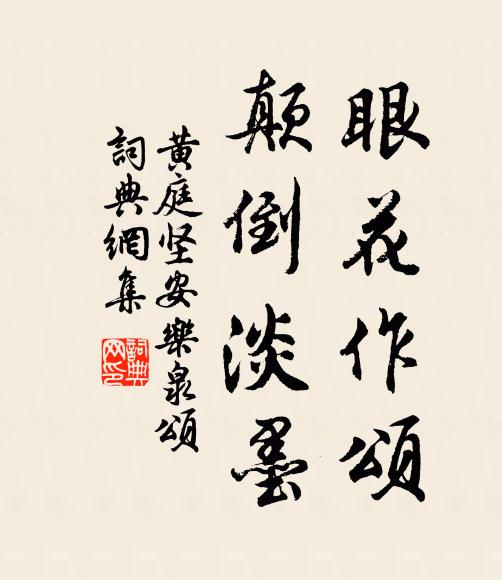 眼花作頌
顛倒淡墨
黃庭坚安樂泉頌
詞典網集
詞典網印